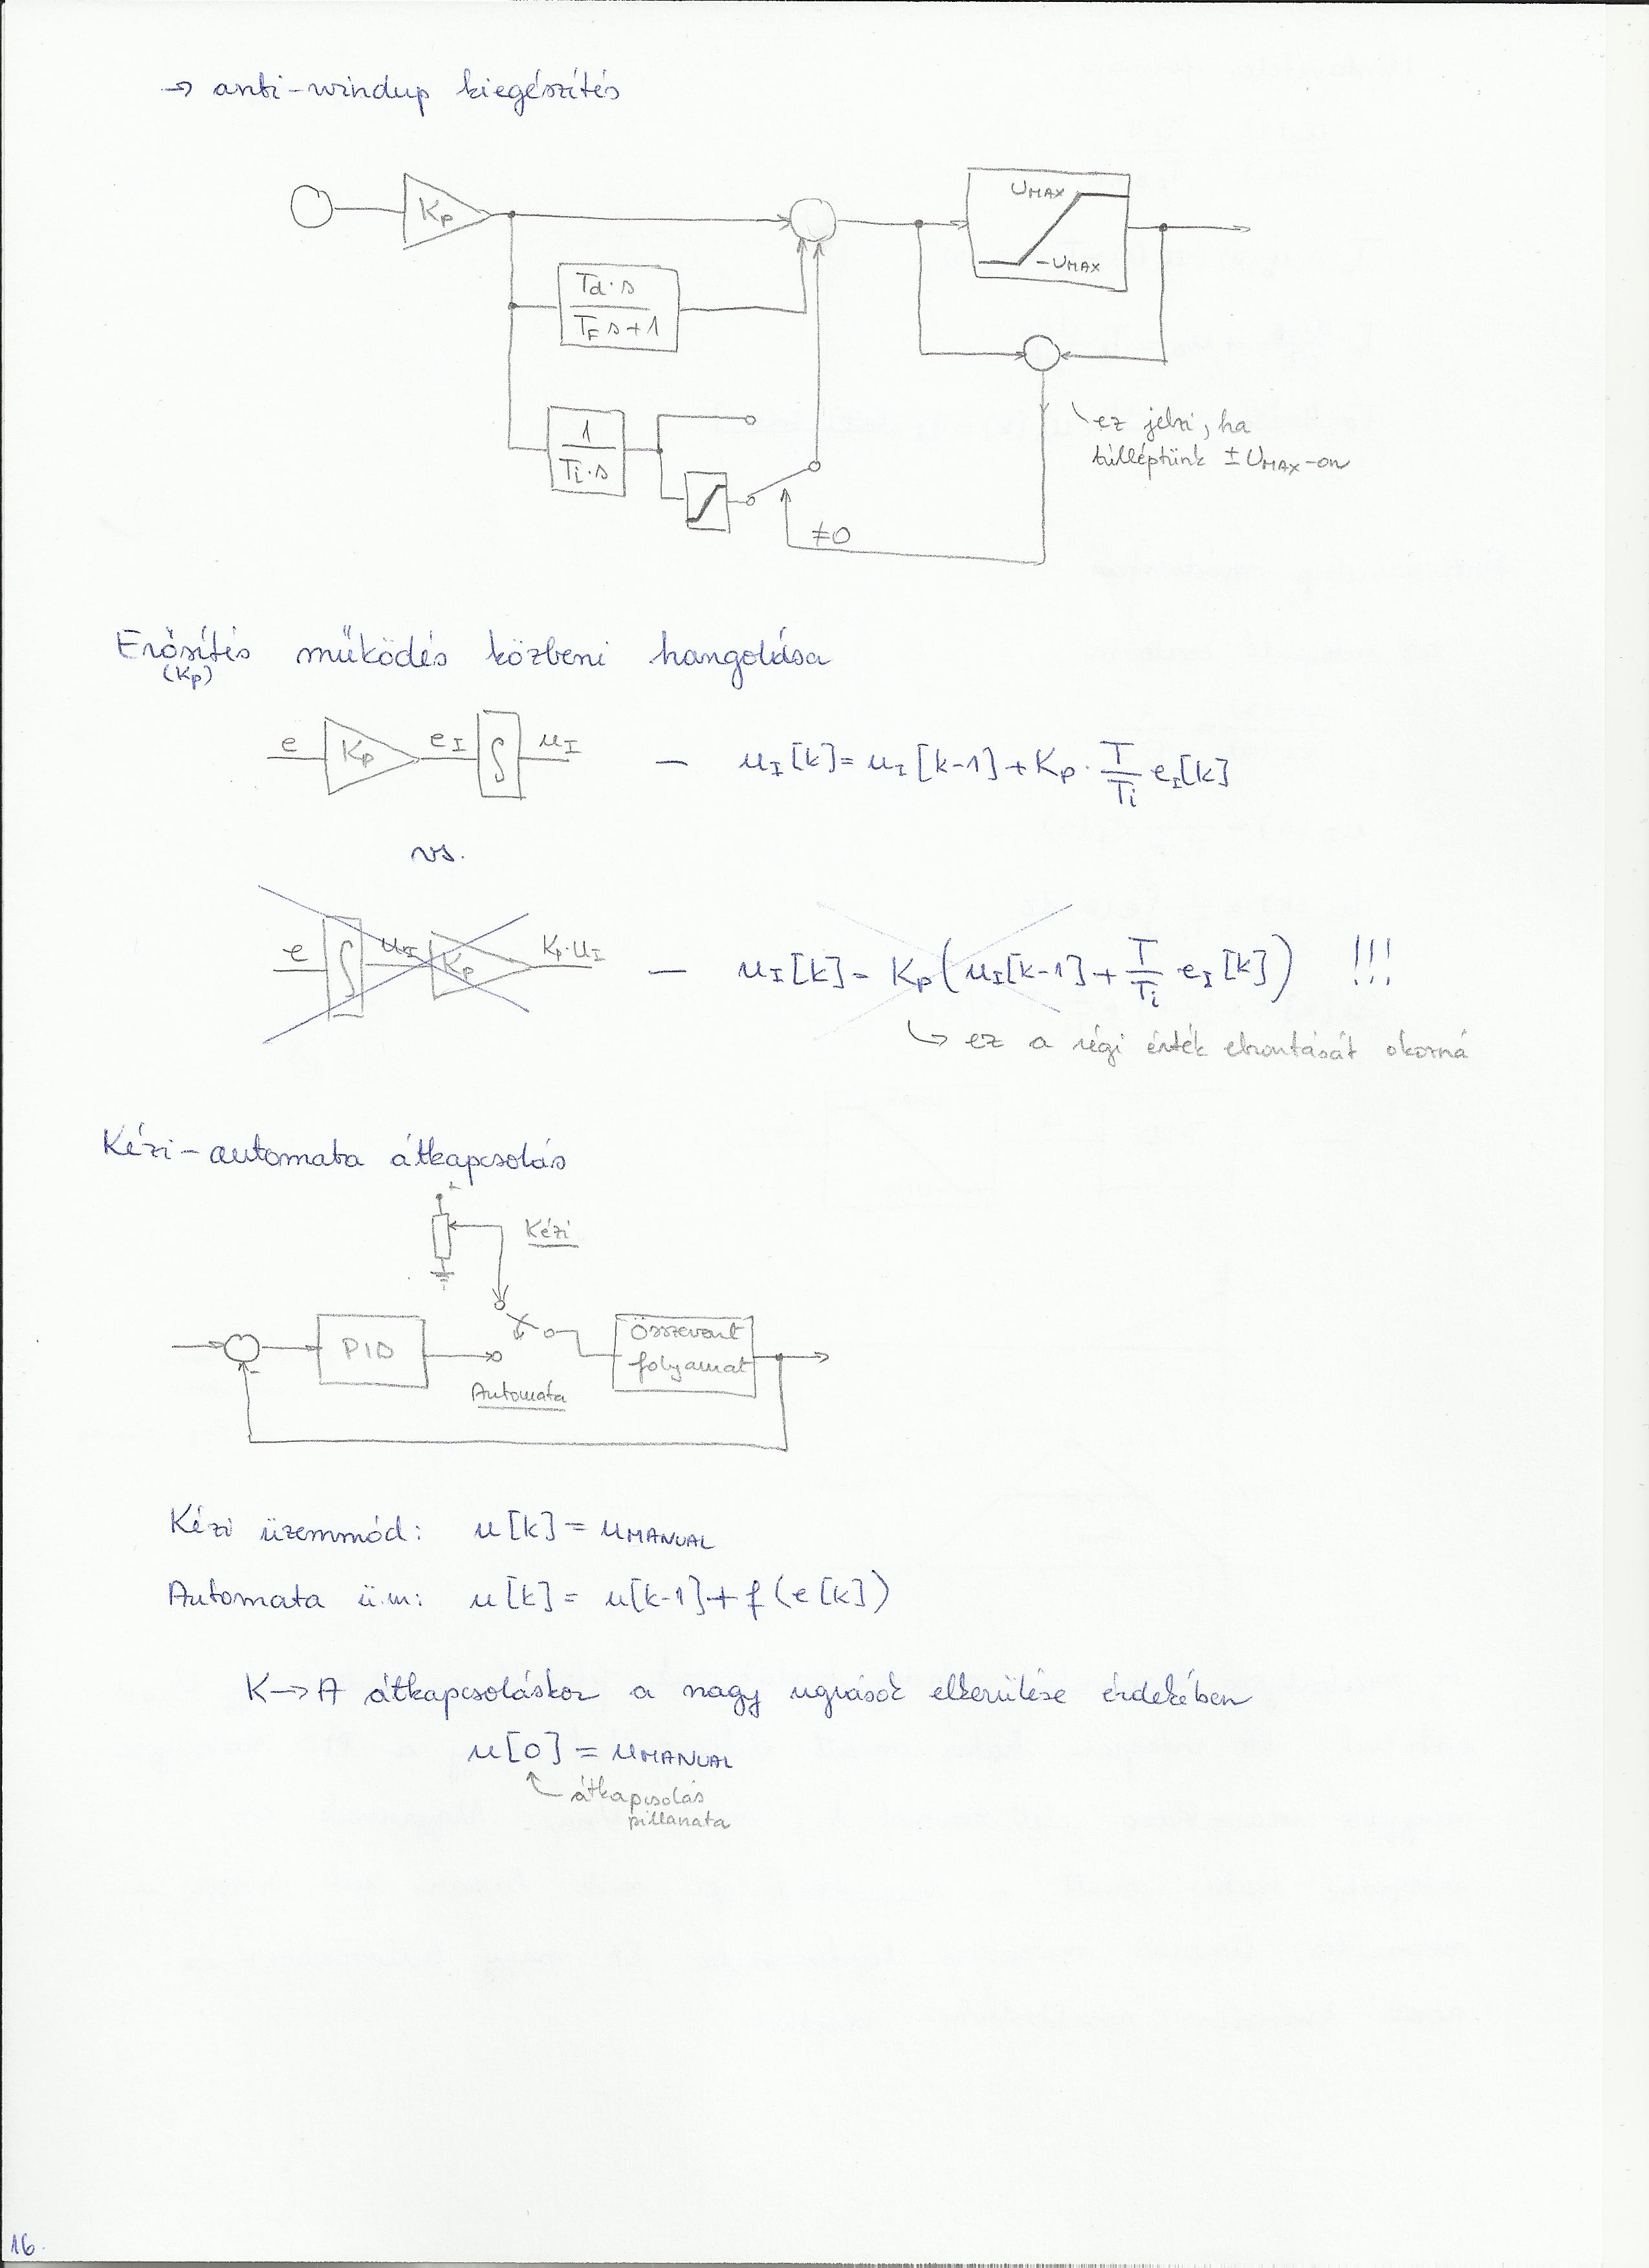 → anti-windup kiegészítés
Kp
UMAX
-UMAX
Td·s
TF s+1
1
Ti·s
≠0
ez jelzi, ha
túlléptünk ±UMAX-on
Erősítés működés közbeni hangolása
(Kp)
e Kp eI ∫ uI — uI[k]= uI[k-1]+Kp· T/Ti eI[k]
vs.
e ∫ uI Kp Kp·uI — uI[k]= Kp(uI[k-1]+ T/Ti eI[k]) !!!
↳ ez a régi érték elrontását okozná
Kézi-automata átkapcsolás
+
Kézi
PID
Összevont
folyamat
-
Automata
Kézi üzemmód: u[k]= uMANUAL
Automata ü.m: u[k]= u[k-1]+f(e[k])
K→A átkapcsoláskor a nagy ugrások elkerülése érdekében
u[0]= uMANUAL
átkapcsolás
pillanata
16.